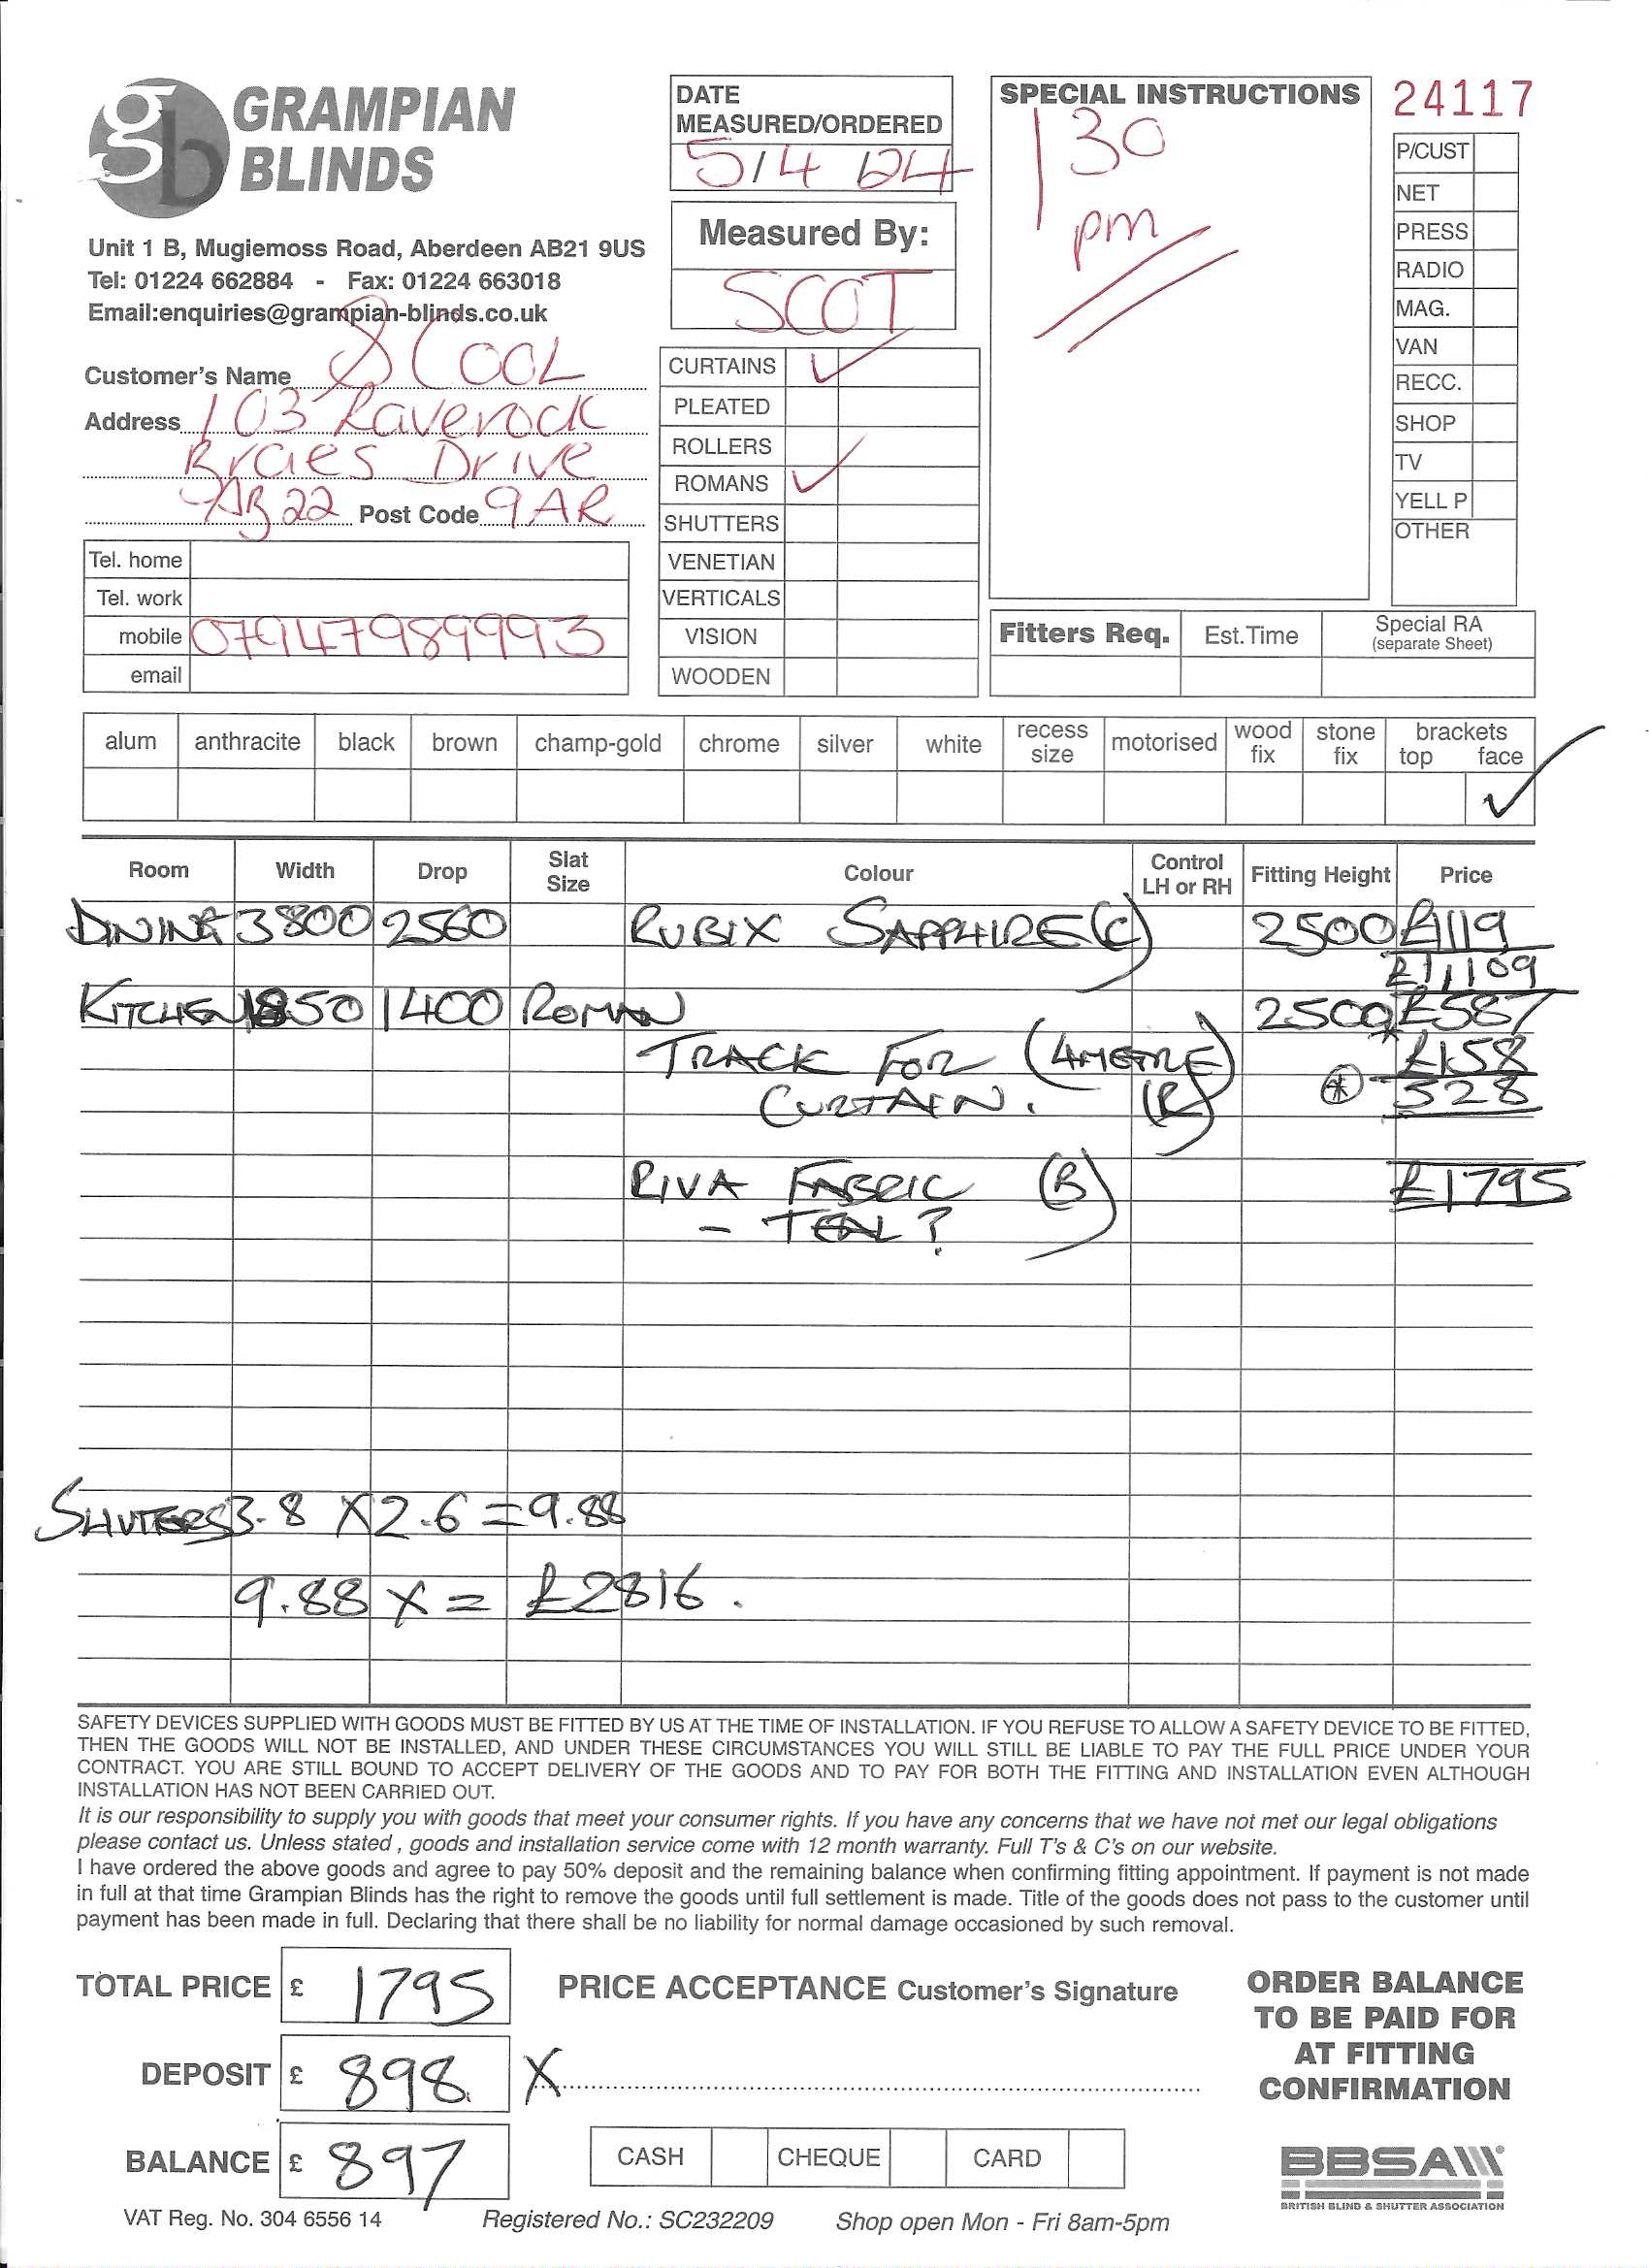 GRAMPIAN
BLINDS
Unit 1 B, Mugiemoss Road, Aberdeen AB21 9US
Tel: 01224 662884 - Fax: 01224 663018
Email:enquiries@grampian-blinds.co.uk
Customer's Name S COOL
Address 103 Raverock
Braes Drive
AB22 Post Code 9AR
Tel. home
Tel. work
mobile 07947989993
email
DATE
MEASURED/ORDERED
5/4/24
Measured By:
SCOT
CURTAINS ✓
PLEATED
ROLLERS
ROMANS ✓
SHUTTERS
VENETIAN
VERTICALS
VISION
WOODEN
SPECIAL INSTRUCTIONS
1 30
pm
24117
P/CUST
NET
PRESS
RADIO
MAG.
VAN
RECC.
SHOP
TV
YELL P
OTHER
Fitters Req. Est.Time Special RA
(separate Sheet)
alum anthracite black brown champ-gold chrome silver white recess size motorised wood fix stone fix brackets top face
✓
Room Width Drop Slat Size Colour Control LH or RH Fitting Height Price
DINING 3800 2560 RUBIX SAPPHIRE (C) 2500 £1119
£1,109
KITCHEN 1850 1400 ROMAN 2500 £587
TRACK FOR (4METRE) * £158
CURTAIN. (R) * 528
RIVA FABRIC (B) £1795
- TEAL?
SHUTTERS 3.8 X 2.6 = 9.88
9.88 X = £2816.
SAFETY DEVICES SUPPLIED WITH GOODS MUST BE FITTED BY US AT THE TIME OF INSTALLATION. IF YOU REFUSE TO ALLOW A SAFETY DEVICE TO BE FITTED,
THEN THE GOODS WILL NOT BE INSTALLED, AND UNDER THESE CIRCUMSTANCES YOU WILL STILL BE LIABLE TO PAY THE FULL PRICE UNDER YOUR
CONTRACT. YOU ARE STILL BOUND TO ACCEPT DELIVERY OF THE GOODS AND TO PAY FOR BOTH THE FITTING AND INSTALLATION EVEN ALTHOUGH
INSTALLATION HAS NOT BEEN CARRIED OUT.
It is our responsibility to supply you with goods that meet your consumer rights. If you have any concerns that we have not met our legal obligations
please contact us. Unless stated , goods and installation service come with 12 month warranty. Full T's & C's on our website.
I have ordered the above goods and agree to pay 50% deposit and the remaining balance when confirming fitting appointment. If payment is not made
in full at that time Grampian Blinds has the right to remove the goods until full settlement is made. Title of the goods does not pass to the customer until
payment has been made in full. Declaring that there shall be no liability for normal damage occasioned by such removal.
TOTAL PRICE £ 1795
DEPOSIT £ 898
BALANCE £ 897
PRICE ACCEPTANCE Customer's Signature
X
CASH CHEQUE CARD
ORDER BALANCE
TO BE PAID FOR
AT FITTING
CONFIRMATION
BBSA
BRITISH BLIND & SHUTTER ASSOCIATION
VAT Reg. No. 304 6556 14 Registered No.: SC232209 Shop open Mon - Fri 8am-5pm